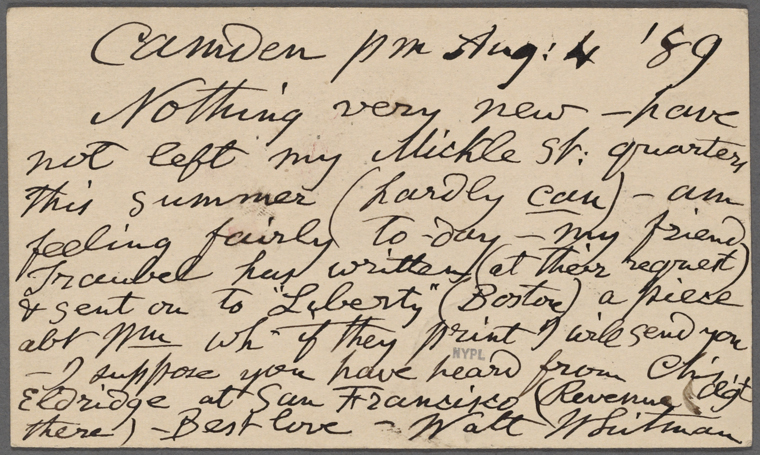 Camden pm Aug: 4 '89
Nothing very new - have
not left my Mickle St: quarters
this summer (hardly can) - am
feeling fairly to-day - my friend
Traubel has written (at their request)
& sent on to "Liberty" (Boston) a piece
abt wh- if they print I will send you
NYPL
- I suppose you have heard from
Eldridge at San Francisco (Revenue
there) - Best love - Walt Whitman